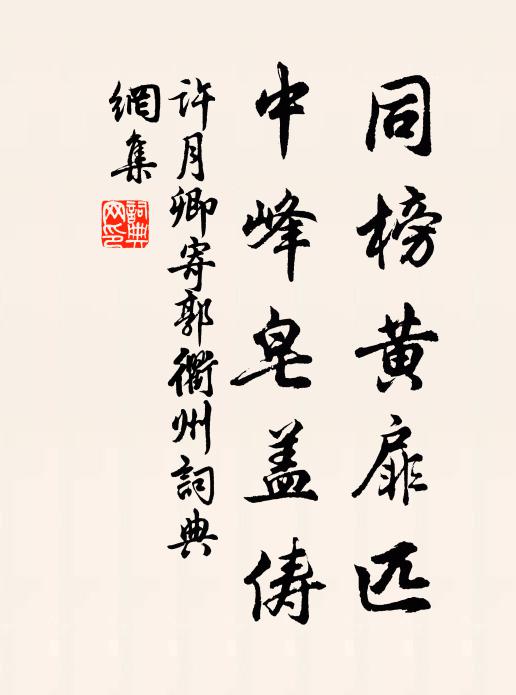 同榜黄扉匹
中峰皂盖俦
許月卿寄郭衢州詞典
網集
詞典網印